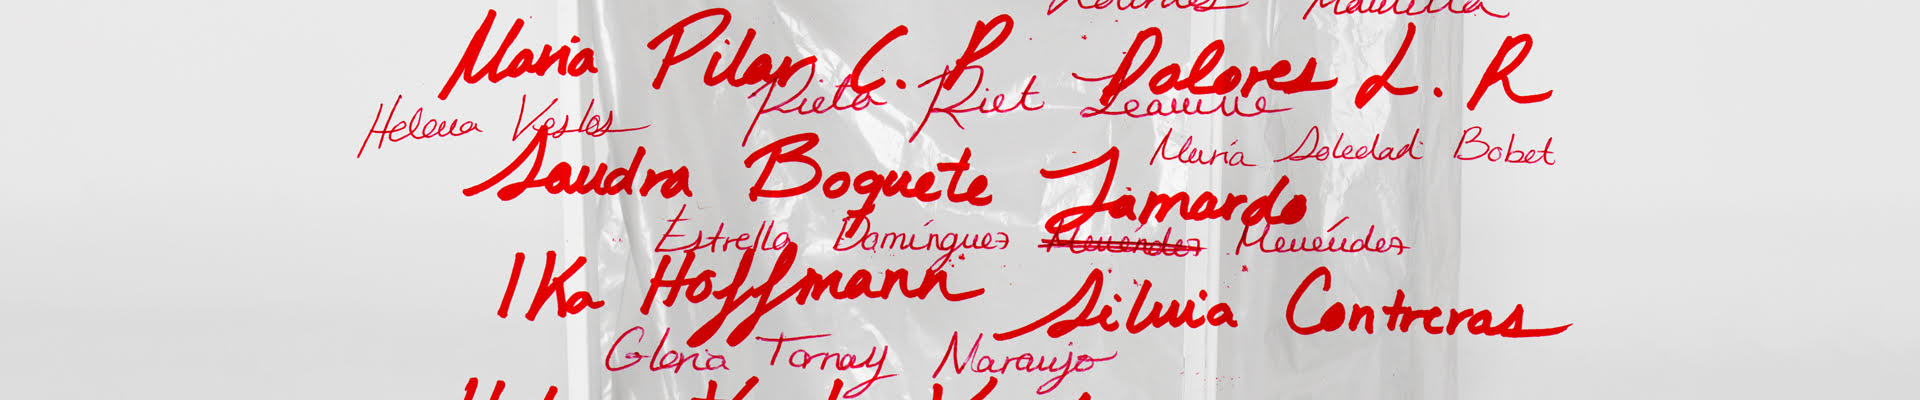 Maria Pilar C. R Dolores L. R
Rieta Riet Leanne
Helena Veslos
María Soledad Bobet
Sandra Boquete Jamardo
Estrella Domínguez Menéndez Menéndez
Ika Hoffmann
Silvia Contreras
Gloria Tornay Maraujo